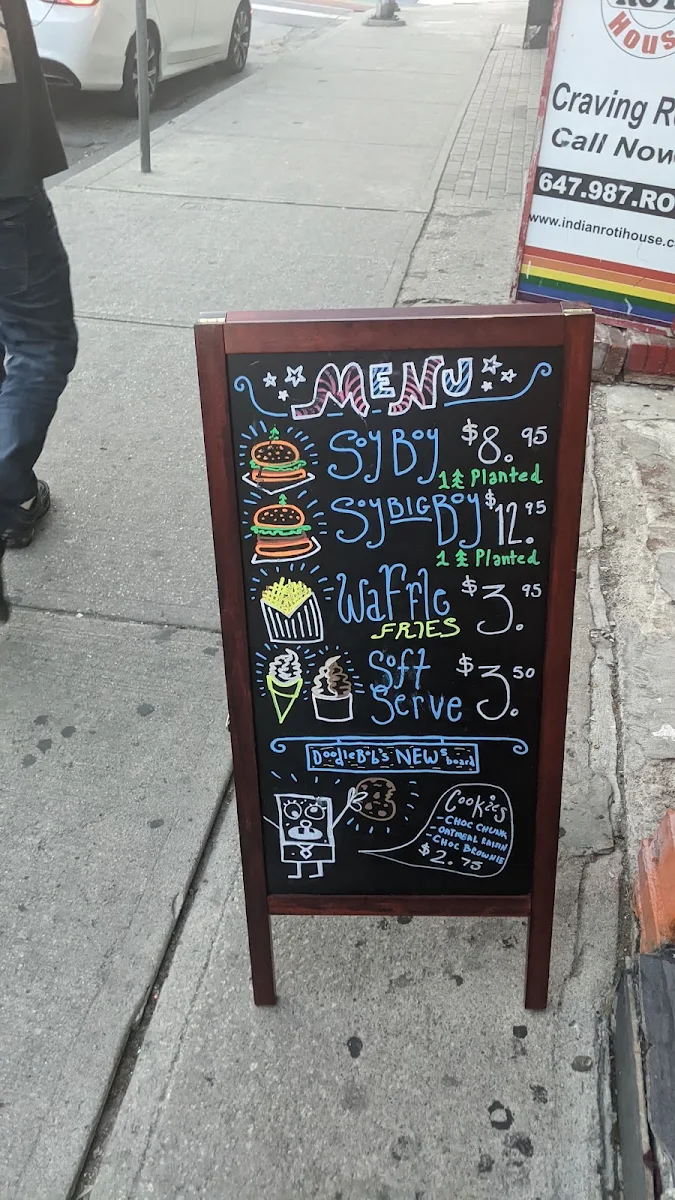 HOUS
Craving R
Call Now
647.987.RO
www.indianrotihouse.c
MENU
Soy Boy $8.95
1 Planted
Soy BIG Boy $12.95
1 Planted
Waffle $3.95
FRIES
Soft $3.50
Serve
DoodleBob's NEWs board
Cookies
- CHOC CHUNK
- OATMEAL RAISIN
- CHOC BROWNIE
$2.75